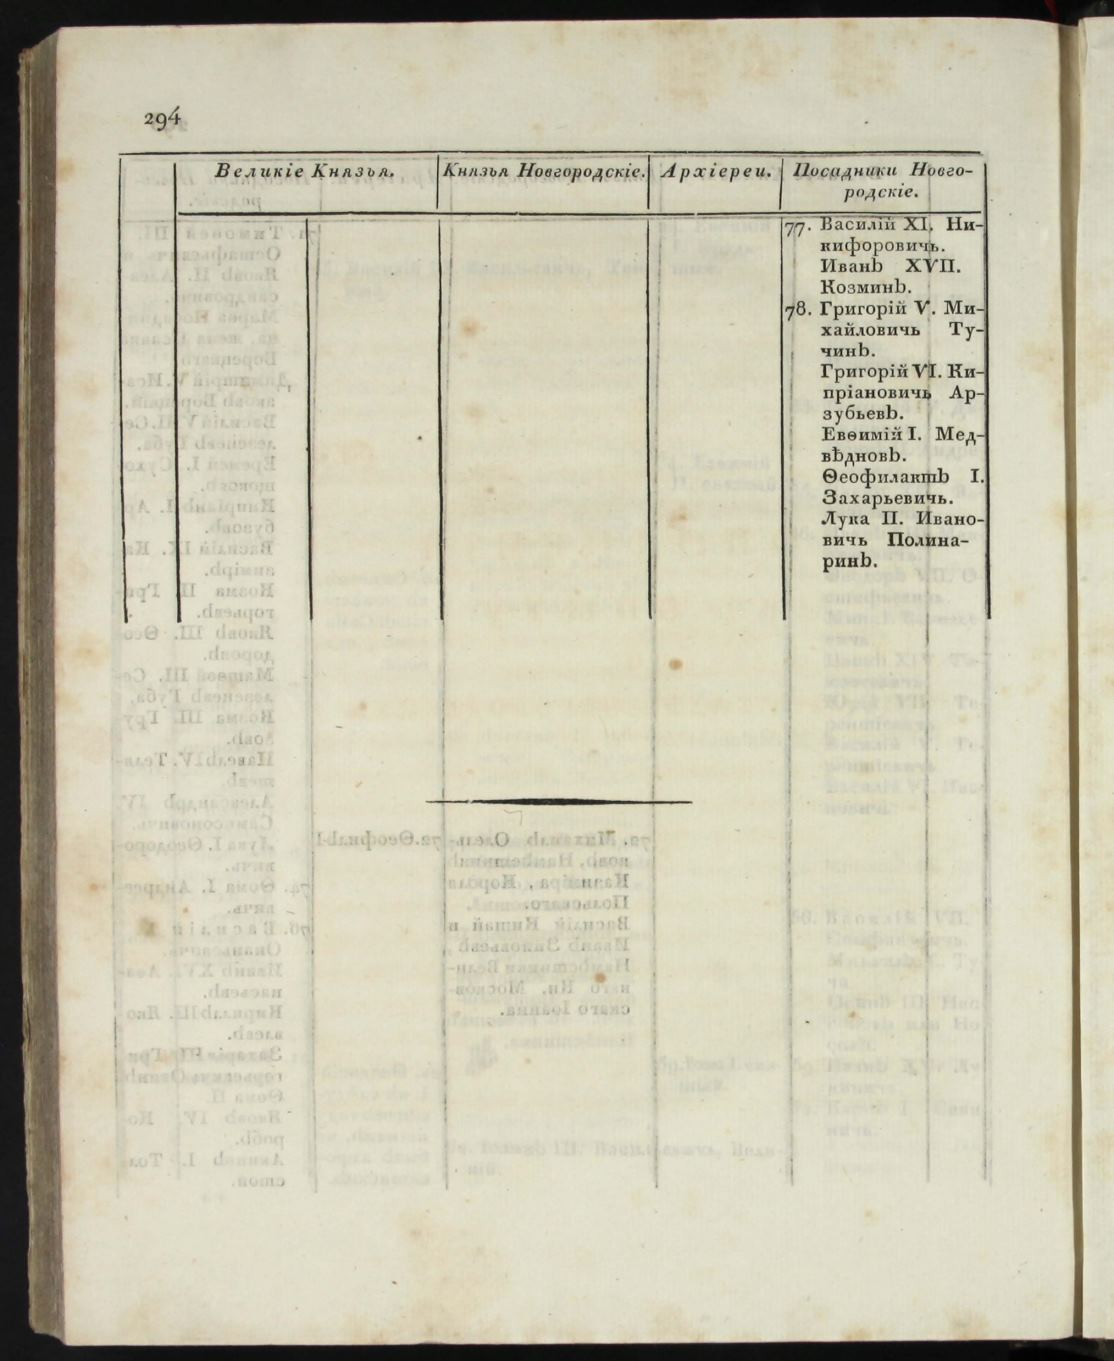 294
Великіе Князья. Князья Новгородскіе. Архіереи. Посадники Новго-
родскіе.
77. Василій XI. Ни-
кифоровичь.
Иванъ XVII.
Козминъ.
78. Григорій V. Ми-
хайловичь Ту-
чинъ.
Григорій VI. Ки-
пріановичь Ар-
зубьевъ.
Евѳимій I. Мед-
вѣдновъ.
Ѳеофилактъ I.
Захарьевичь.
Лука II. Ивано-
вичь Полина-
ринъ.